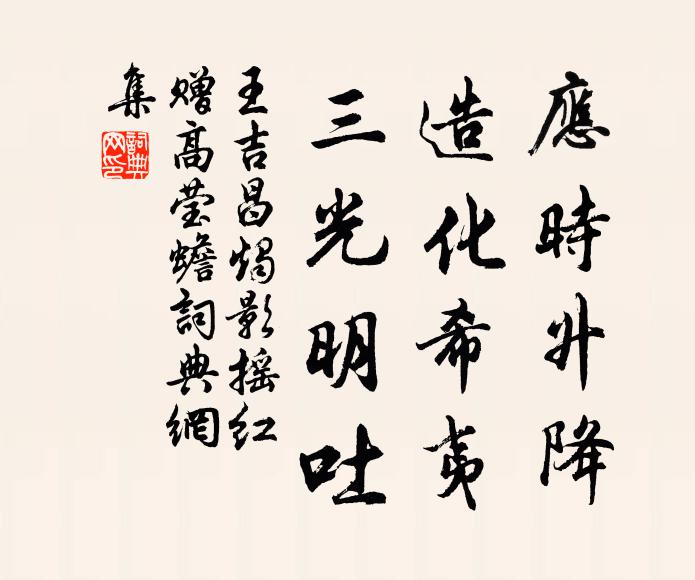 應時升降
造化希夷
三光明吐
王吉昌燭影摇紅
贈高瑩蟾詞典網
集
詞典
网印